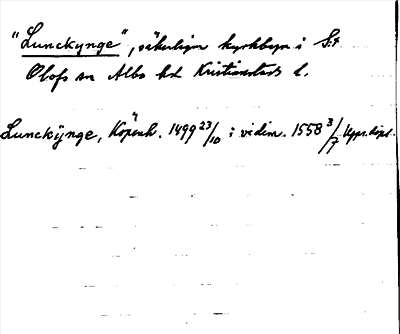 "Lunckynge", säkerligen kyrkbyn i S:t
Olofs sn Albo hd Kristianstads l.
Lunckÿnge, Köpenh. 1499 23/10 i vidim. 1558 3/7 Upps. dipl.